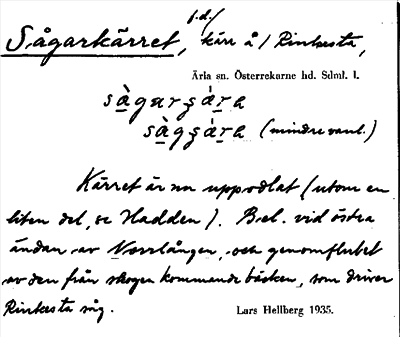 Sågarkärret, f.d. kärr å / Rinkesta,
Ärla sn. Österrekarne hd. Sdml. l.
sàgarʂá̱ra
sàgʂá̱ra (mindre vanl.)
Kärret är nu uppodlat (utom en
liten del, se Hadden). Bel. vid östra
ändan av Norrlången, och genomflutet
av den från skogen kommande bäcken, som driver
Rinkesta såg.
Lars Hellberg 1935.